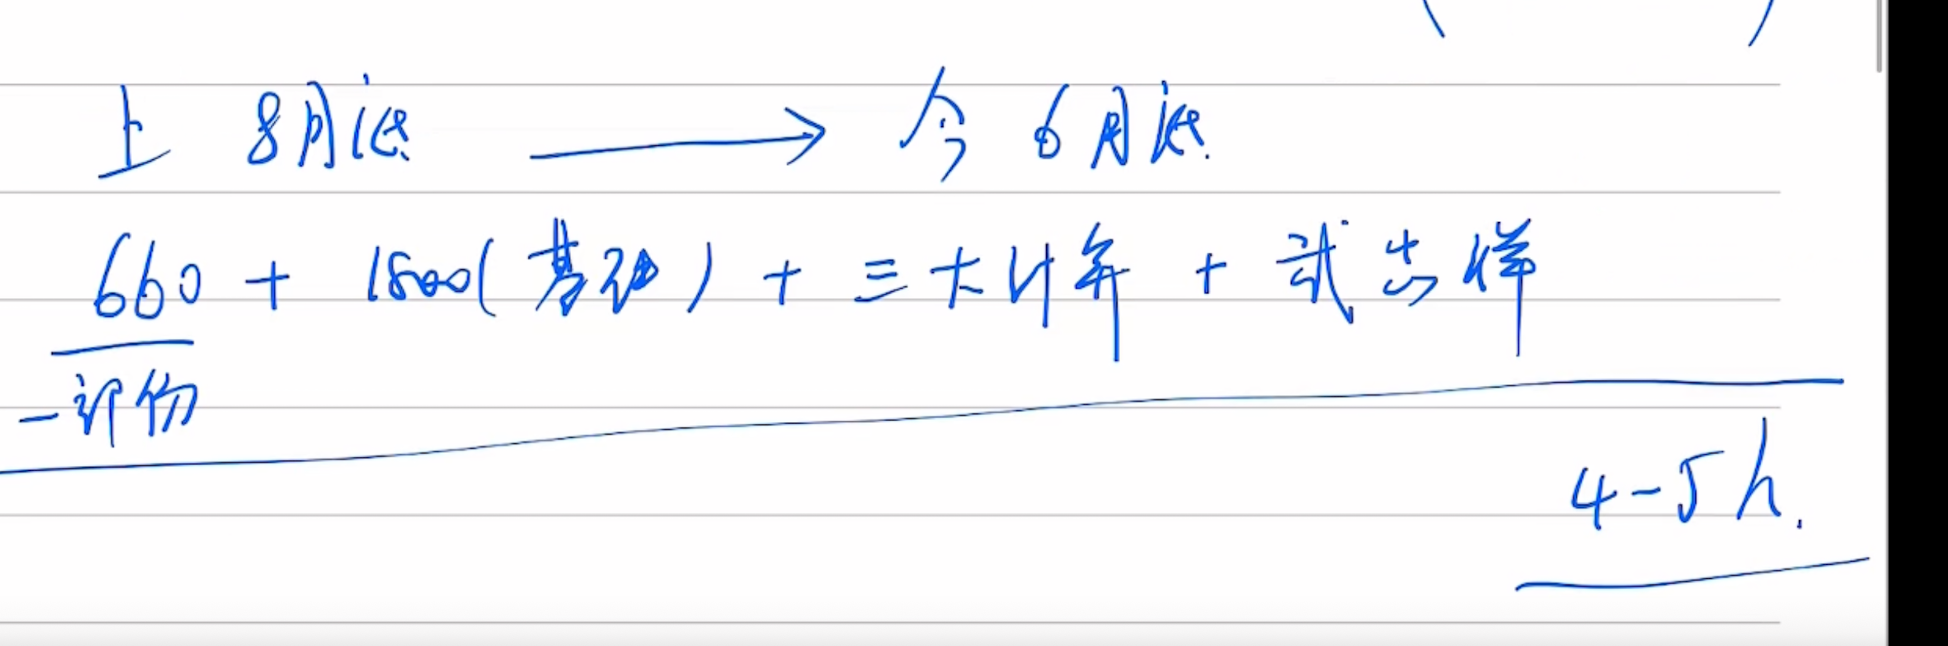 上 8月底 → 今 6月底
660 + 1800(基础) + 三大计算 + 武忠祥
一部份
4-5h.